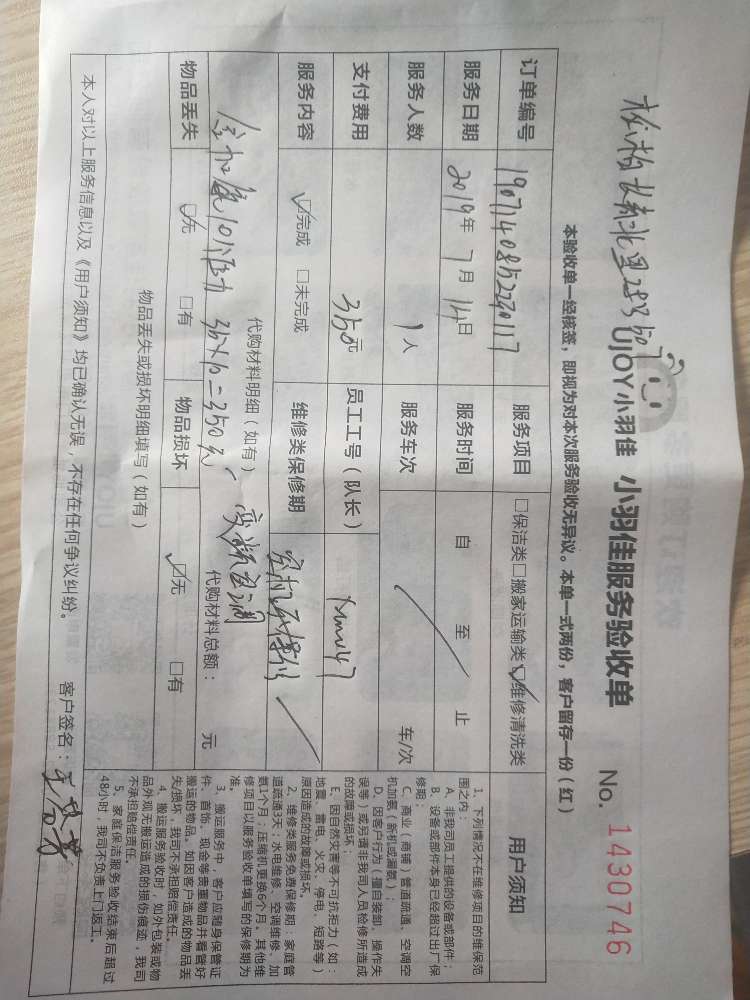 UJOY小羽佳 小羽佳服务验收单 No. 1430746
本验收单一经核签，即视为对本次服务验收无异议。本单一式两份，客户留存一份（红）
订单编号 服务项目 □保洁类□搬家运输类☑维修清洗类
服务日期 2019年7月14日 服务时间 自 至 止
服务人数 1人 服务车次 车/次
支付费用 350元 员工工号（队长）
服务内容 ☑完成 □未完成 维修类保修期
代购材料明细（如有）
35×10=350元 变频空调
代购材料总额： 元
物品丢失 ☑无 □有 物品损坏 ☑无 □有
物品丢失或损坏明细填写（如有）
本人对以上服务信息以及《用户须知》均已确认无误，不存在任何争议纠纷。 客户签名：
用户须知
1、下列情况不在维修项目的维保范
围之内：
A、非我司员工提供的设备或部件；
B、设备或部件本身已经超过出厂保
修期；
C、商业（商铺）管道疏通、空调空
机加氨（新机或漏氨）；
D、因客户行为（擅自装卸、操作失
误等）或另请非我司人员检修所造成
的故障或损坏
E、因自然灾害等不可抗拒力（如：
地震、雷电、火灾、停电、短路等）
原因造成的故障或损坏。
2、维修类服务免费保修期：家庭管
道疏通3天；水电维修、空调维修、加
氨1个月；压缩机更换6个月。其他维
修项目以服务验收单填写的保修期为
准。
3、搬运服务中，客户应随身保管证
件、首饰、现金等贵重物品并看管好
搬运的物品。如因客户造成的物品丢
失/损坏，我司不承担赔偿责任。
4、搬运服务验收时，如外包装或物
品外观无搬运造成的损伤痕迹，我司
不承担赔偿责任。
5、家庭保洁服务验收结束后超过
48小时，我司不负责上门返工。